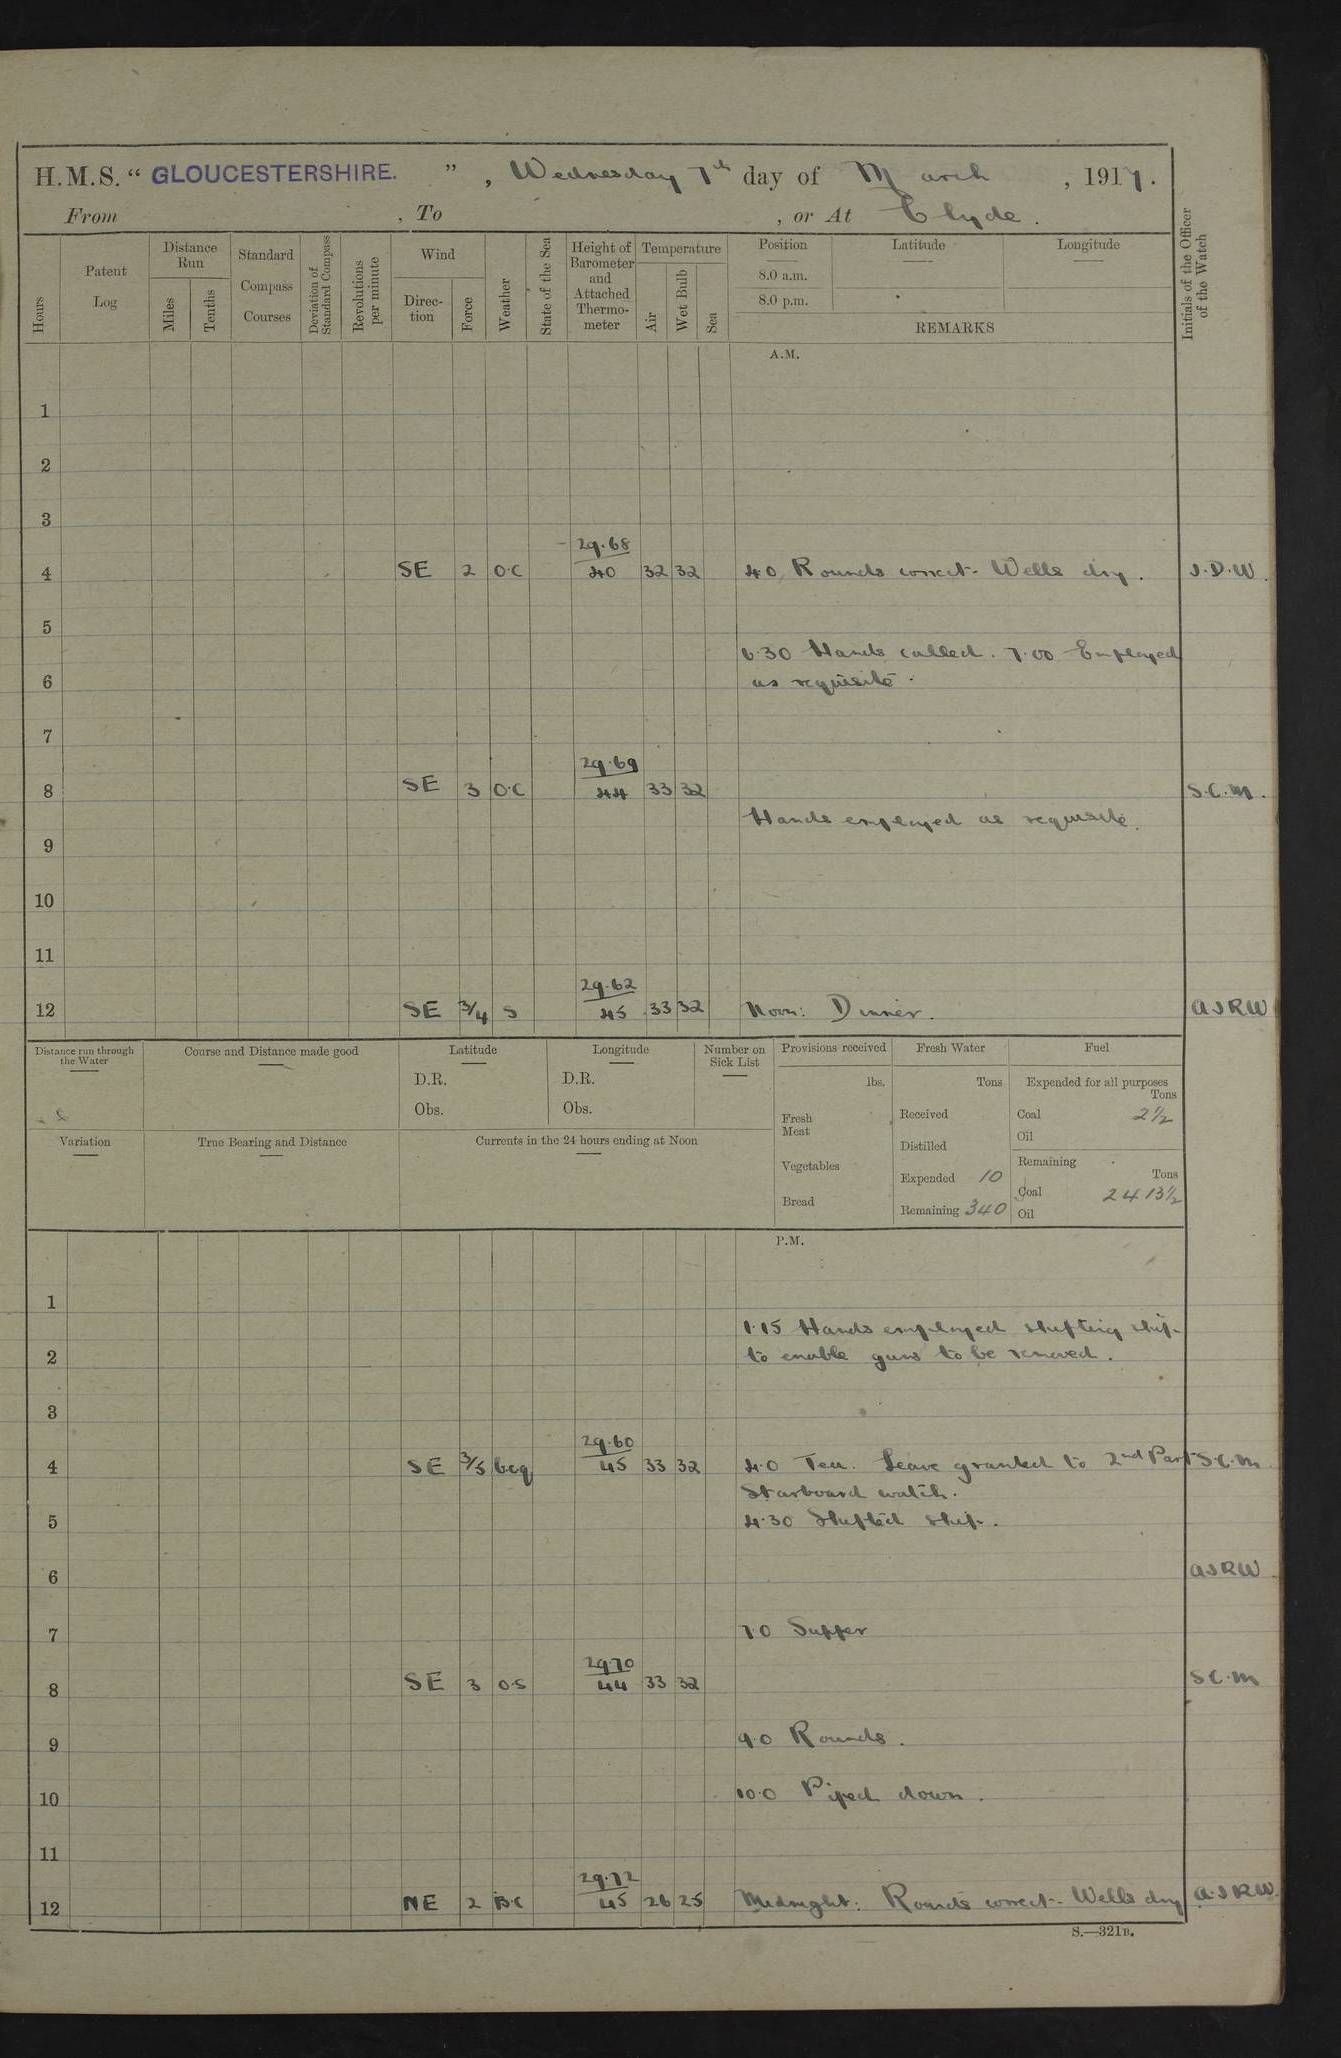 H.M.S. “ GLOUCESTERSHIRE. ” , Wednesday 7th day of March , 1917.
From , To , or At Clyde .
Hours
Patent Log
Distance Run
Miles
Tenths
Standard Compass Courses
Deviation of Standard Compass
Revolutions per minute
Wind
Direc-tion
Force
Weather
State of the Sea
Height of Barometer and Attached Thermo-meter
Temperature
Air
Wet Bulb
Sea
Position
8.0 a.m.
8.0 p.m.
Latitude
Longitude
REMARKS
Initials of the Officer of the Watch
A.M.
1
2
3
29.68
4 SE 2 O.C 40 32 32 4.0 Rounds correct - Wells dry . J.D.W.
5
6.30 Hands called . 7.00 Employed
6 as requisite .
7
29.69
8 SE 3 O.C 44 33 32 S.C.M.
Hands employed as requisite.
9
10
11
29.62
12 SE 3/4 S 45 33 32 Noon: Dinner . AJRW
Distance run through the Water
Course and Distance made good
Latitude
D.R.
Obs.
Longitude
D.R.
Obs.
Number on Sick List
Provisions received
lbs.
Fresh Meat
Vegetables
Bread
Fresh Water
Tons
Received
Distilled
Expended 10
Remaining 340
Fuel
Expended for all purposes
Tons
Coal 2½
Oil
Remaining
Tons
Coal 2413½
Oil
Variation
True Bearing and Distance
Currents in the 24 hours ending at Noon
P.M.
1
1.15 Hands employed shifting ship
2 to enable guns to be removed .
3
29.60
4 SE 3/5 b.c.q 45 33 32 4.0 Tea. Leave granted to 2nd Part S.C.M
Starboard watch .
5 4.30 Shifted ship .
6 AJRW
7 7.0 Supper
29.70
8 SE 3 O.S 44 33 32 S.C.M
9 9.0 Rounds .
10 10.0 Piped down .
11
29.72
12 NE 2 B.C 45 26 25 Midnight: Rounds correct - Wells dry A.J.R.W.
S.—321B.